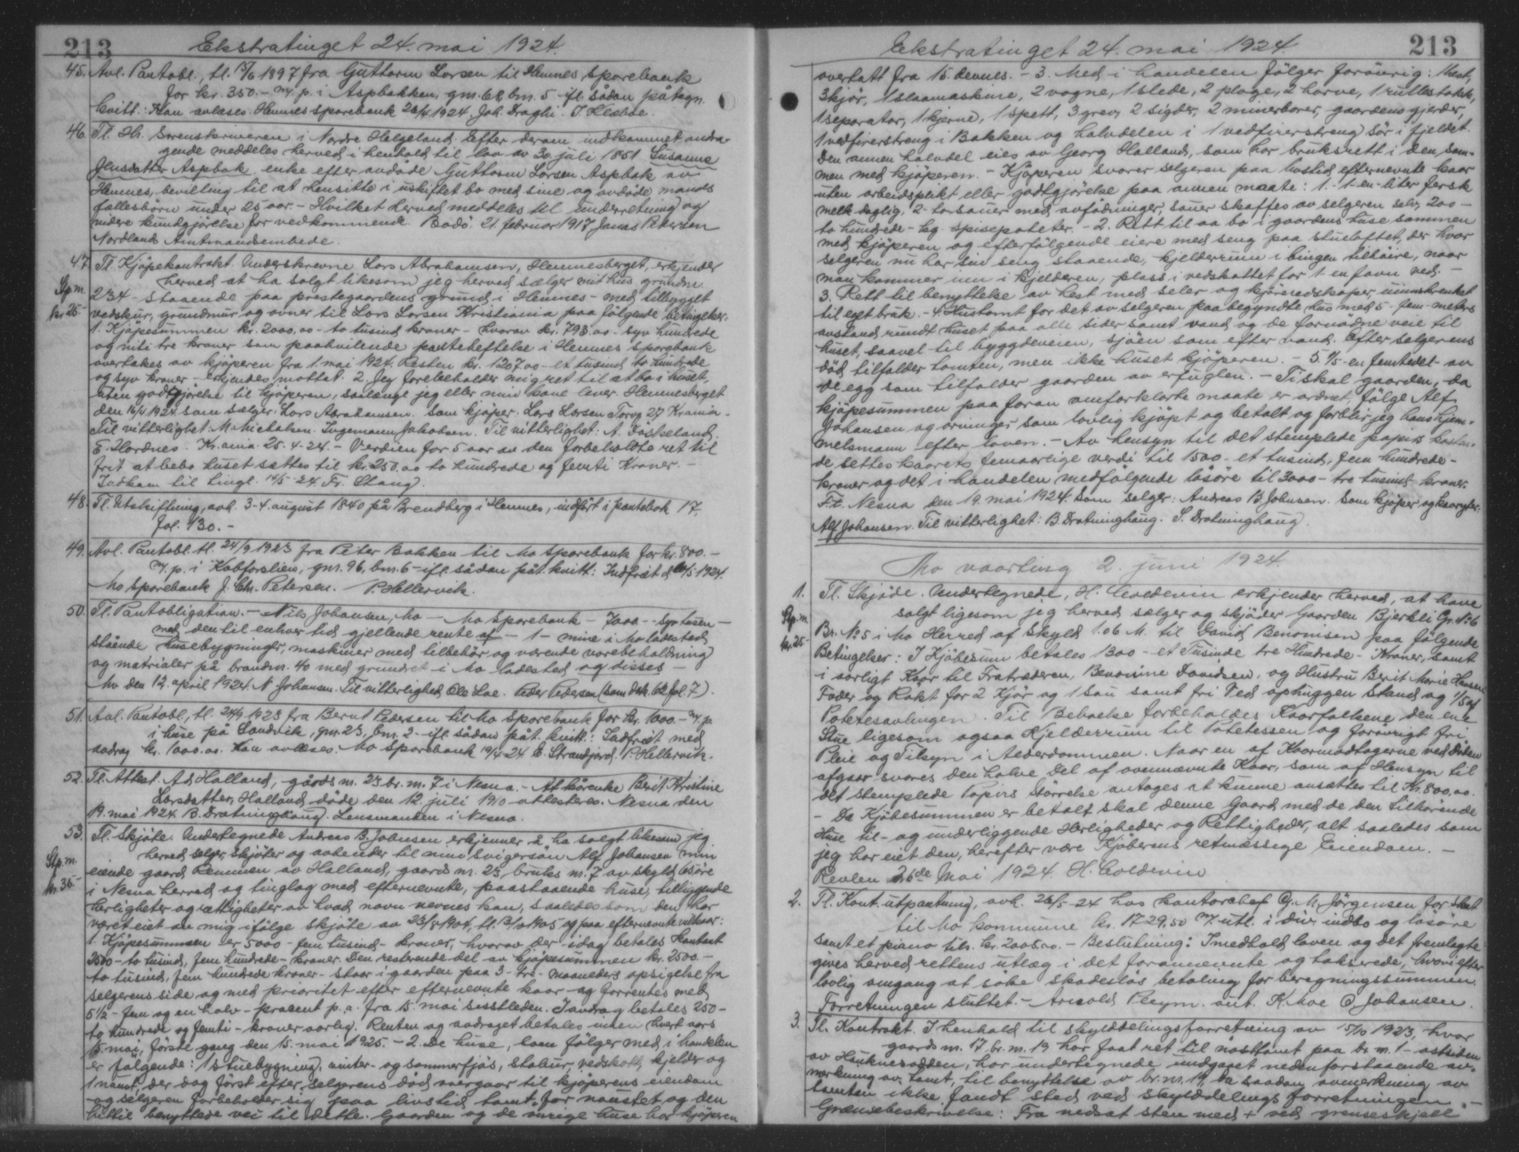 213
Ekstratinget 24. mai 1924.
45. Avl. Pantobl., tl. 1897 fra Guttorm Larsen til Hemnes Sparebank
for kr. 350.- m. p. i Aspbakken, gnr. 68, bnr. 5 ifl. sådan påtegn.
kvitt: Kan avlæses. Hemnes Sparebank 1924 Joh. Draghi.
46. Tl. Hr. Sorenskriveren i Nordre Helgeland. Efter derom indkommet andra-
gende meddeles herved i henhold til lov av 30 juli 1851 Susanna
Jensdatter Aspbak, enke efter avdøde Guttorm Larsen Aspbak av
Hemnes, bevilling til at hensitte i uskiftet bo med sine og avdøde mands
fællesbørn under 25 aar. - Hvilket herved meddeles til underretning og
videre kundgjørelse for vedkommende. Bodø 21. februar 1918 Jonas Petersen
Nordlands Amtmandsembede.
47. Tl. Kjøpekontrakt. Underskrevne Lars Abrahamsen, Hemnesberget, erkjender
Stp. m. herved at ha solgt likesom jeg herved sælger mit hus grundnr.
kr. 25.- 234 - staaende paa prestegaardens grund i Hemnes - med tilbygget
vedskur, grundmur og ovner til Lars Larsen Kristiania paa følgende betingelser:
1. Kjøpesummen kr. 2000,00 - to tusind kroner - hvorav kr. 793.00 - syv hundrede
og niti tre kroner som paahvilende pantehеftelse i Hemnes Sparebank
overtakes av kjøperen fra 1. mai 1924. Resten kr. 1207.00 - et tusind to hundrede
og syv kroner - erkjendes mottat. 2. Jeg forebeholder mig ret til at bo i huset,
uten godtgjørelse til kjøperen, saalenge jeg eller min kone lever. Hemnesberget
den 16/4 1924 som sælger: Lars Abrahamsen. Som kjøper: Lars Larsen Torvg 27 Krania -
Til vitterlighet M. Michalsen. Ingemann Jakobsen. Til vitterlighet: A.
E. Hordnes. Kr.ania 25.4.24. - Værdien for 5 aar av den forbeholdte ret til
frit at bebo huset sættes til kr. 250.00 to hundrede og femti kroner. -
Indkom til tingl. 24 Fr. Stang.
48. Tl. Utskiftning, avh. 3-4. august 1840 på Brendberg i Hemnes, indført i pantebok 17,
fol. 130. -
49. Avl. Pantobl. tl. 24/9 1923 fra Peter Bakken til Mo Sparebank for kr. 800. -
m. p. i Kobforslien, gnr. 96, bnr. 6 - ifl. sådan påt. kvitt: Indfriet d. 1924.
Mo Sparebank J. Chr. Petersen. P. Hellervik.
50. Tl. Pantobligation. - Nils Johansen, Mo - Mo Sparebank - 7000 - syv tusen -
med den til enhver tid gjellende rente af - 1 - mine i Mo ladested
stående husebygninger, maskiner med tilbehør og værende varebeholdning
og matrialer på brandnr. 40 med grundret i Mo ladested og disses -
Mo den 12 april 1924. N Johansen. Til vitterlighed Ole Lae. Peder Pedersen
51. Avl. Pantobl., tl. 1923 fra Bernt Pedersen til Mo Sparebank for kr. 1000. - m. p.
i huse på Sandvik, gnr. 23, bnr. 2 - ifl. sådan påt. kvitt.: Indfriet med
avdrag kr. 1000.00. Kan avlæses. Mo Sparebank 24 E. Strandjord. P. Hellervik.
52. Tl. Attest. Ad Halland, - gårds nr. 23 br. nr. 7 i Nesna. - At kårenke Berit Kristine
Larsdatter Halland døde den 12 juli 1910 attesteres. Nesna den
19. mai 1924. B. Dratninghaug. Lensmanden i Nesna.
53. Tl. Skjøte. Undertegnede Andreas B. Johnsen erkjenner å ha solgt likesom jeg
Stp. m. herved selger, skjøter og avhender til min svigersøn Alf Johansen min
kr. 35.- eiende gaard av Halland, gaards nr. 23, bruks nr. 7 av skyld
i Nesna herred og tinglag med efternevnte, paastaaende huse, tilliggende
herligheter og rettigheter av hvad navn nevnes kan, saaledes som den har
været eiet av mig ifølge skjøte av 23/8 1904, tl. 1905 og paa efternevnte vilkaar:
1. Kjøpesummen er 5000 - fem tusind - kroner, hvorav der idag betales kontant
2500 - to tusind, fem hundrede - kroner. Den resterende del av kjøpesummen kr. 2500. -
to tusind, fem hundrede kroner - staar i gaarden paa 3 - tre - maaneders opsigelse fra
selgerens side og med prioritet efter efternevnte kaar - og forrentes med
5 1/2 - fem og en halv - procent p. a. fra 15. mai sistleden. I avdrag betales 250 -
to hundrede og femti - kroner aarlig. Renten og avdraget betales innen hvert aars
15. mai, første gang den 15. mai 1925. - 2. De huse, som følger med i handelen
er følgende: 1 stuebygning, vinter- og sommerfjøs, stabur, vedskott, kjelder og
1 naust, der dog først efter selgerens død overgaar til kjøperens eiendom
og selgeren forbeholder sig paa livstid tomt for naustet og den
hittil benyttede vei til dette. Gaarden og de øvrige huse har kjøperen
Ekstratinget 24. mai 1924
213
overtatt fra 15. dennes. - 3. Med i handelen følger forøvrig: 1 hest,
3 kjør, 1 slaamaskine, 2 vogne, 1 slede, 2 ploge, 2 horve, 1 rullestokk,
1 separator, 1 kjerne, 1 spett, 3 grev, 2 sigder, 2 minerborer, gaardens gjerder,
1 vedfirerstreng i Bakken og halvdelen i 1 vedfirerstreng sør i fjeldet.
Den annen halvdel eies av Georg Halland, som har bruksrett i den, sam-
men med kjøperen. - Kjøperen svarer selgeren paa livstid efternevnte kaar
uten arbeidsplikt eller godtgjørelse paa annen maate: 1. 1 - en - liter fersk
melk daglig, 2 - to sauer med avfødninger, sauer skaffes av selgeren selv, 200 -
to hundrede - kg. spisepoteter. - 2. Rett til aa bo i gaardens huse sammen
med kjøperen og efterfølgende eiere med seng paa stueloftet, der hvor
selgeren nu har sin seng staaende, kjelderrum i bingen tilhøire, naar
man kommer inn i kjelderen, plass i vedskottet for 1 - en favn ved -
3. Rett til benyttelse av hest med seler og kjøreredskaper uinnskrenket
til eget bruk. - 4. Hustomt for det av selgeren paabegyndte hus med 5 - fem - meters
avstand rundt huset paa alle sider samt vand og de fornødne veie til
huset, saavel til bygdeveien, sjøen som efter vand. Efter selgerens
død tilfalder tomten, men ikke huset kjøperen. - 5. 1/5 - en femtedel - av
de egg som tilfalder gaarden av erfuglen. - Ti skal gaarden, da
kjøpesummen paa foran omforklarte maate er ordnet, følge Alf
Johansen og arvinger som lovlig kjøpt og betalt og forblir jeg hans hjem-
melsmann efter loven. - Av hensyn til det stemplede papirs kostn.
de settes kaarets femaarlige verdi til 1500 - et tusind, fem hundrede -
kroner og det i handelen medfølgende løsøre til 3000 - tre tusind - kroner.
Ft. Nesna den 19 mai 1924. Som selger: Andreas B Johnsen. Som kjøper og kaaryter:
Alf Johansen. Til vitterlighet: B. Dratninghaug. S. Dratninghaug.
Mo vaarting 2. juni 1924
1. Tl. Skjøde. Undertegnede, H. Coldevin erkjender herved, at have
Stp. m. solgt ligesom jeg herved sælger og skjøder Gaarden Bjerkli Gr. No 6
kr. 25.- Br. No 5 i Mo Herred af Skyld 1.06 M. til David Benonisen paa følgende
Betingelser: I Kjøbesum betales 1300 - et Tusinde tre Hundrede - Kroner, samt
i aarligt Kaar til Fratræderen, Benonine Davidsen, og Hustru Berit Marie Hansen
Foder og Røkt for 2 Kjør og 1 Sau samt fri Ved ophuggen Stand og
Potetesavlingen. Til Beboelse forbeholdes Kaarfolkene den ene
Stue ligesom ogsaa Kjelderrum til Potetessen og forøvrigt fri
Pleie og Tilsyn i Alderdommen. Naar en af Kaarmodtagerne ved Døden
afgaar svares den halve Del af ovennævnte Kaar, som af Hensyn til
det stemplede Papirs Størrelse antages at kunne ansættes til Kr. 800,00.
- Da Kjøbesummen er betalt skal denne Gaard med de den tilhørende
Huse til- og underliggende Herligheder og Rettigheder, alt saaledes som
jeg har eiet den, herefter være Kjøberens retmæssige Eiendom. -
Revlen 26de Mai 1924. H. Coldevin
2. Tl. Kont. utpantning, avh. 26/5-24 hos kontorchef O. M. Jörgensen for skat
til Mo kommune kr. 1729,50 m. utl. i div. indbo og løsøre
samt et piano tils. kr. 2005.00. - Beslutning: I medhold loven og det fremlagte
gives herved rettens utlæg i det forannævnte og takserede, hvori efter
lovlig omgang at søke skadesløs betaling for beregningssummen.
Forretningen sluttet - Arnold Pleym. vit. K. Moe O. Johansen.
3. Tl. Kontrakt. I henhold til skylddelingsforretning av 1923, hvor
gaards nr. 17, br. nr. 19 har faat ret til nøsttomt paa br. nr. 1 - østsiden
av Hauknesodden, har undertegnede undgaaet nedenforstaaende av-
merkning av tomt, til benyttelse av br. nr. 19, da saadan avmerkning av
tomten ikke fandt sted ved skylddelings forretningen -
Grænsebeskrivelse: Fra nedsat sten med + ved grænseskjell